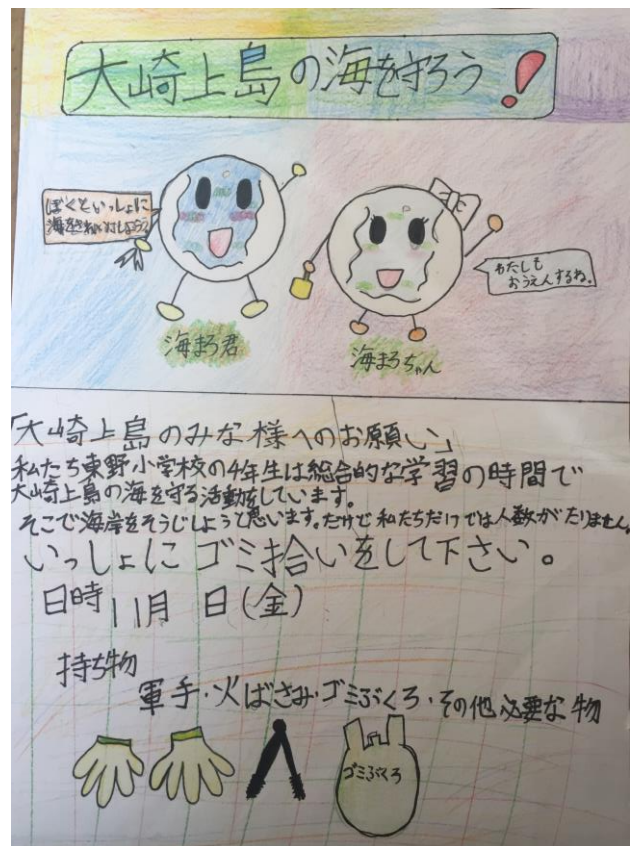 大崎上島の海を守ろう！
ぼくといっしょに
海をきれいにしよう
わたしも
おうえんするね。
海まろ君
海まろちゃん
「大崎上島のみな様へのお願い」
私たち東野小学校の4年生は総合的な学習の時間で
大崎上島の海を守る活動をしています。
そこで海岸をそうじしようと思います。だけど私たちだけでは人数がたりません。
いっしょにゴミ拾いをして下さい。
日時 11月 日(金)
持ち物
軍手・火ばさみ・ゴミぶくろ・その他必要な物
ゴミぶくろ